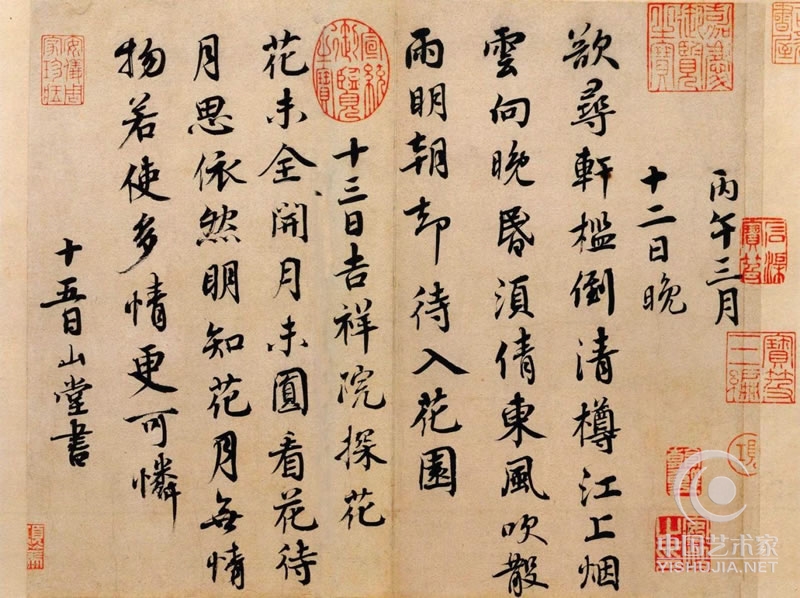 丙午三月
十二日晚
欲尋軒檻倒清樽江上烟
雲向晚昏須倩東風吹散
雨明朝却待入花園
十三日吉祥院探花
花未全開月未圓看花待
月思依然明知花月無情
物若使多情更可憐
十五日山堂書
嘉慶御覽之寶
宣統御覽之寶
安儀周家珍藏
中国艺术家
YISHUJIA.NET